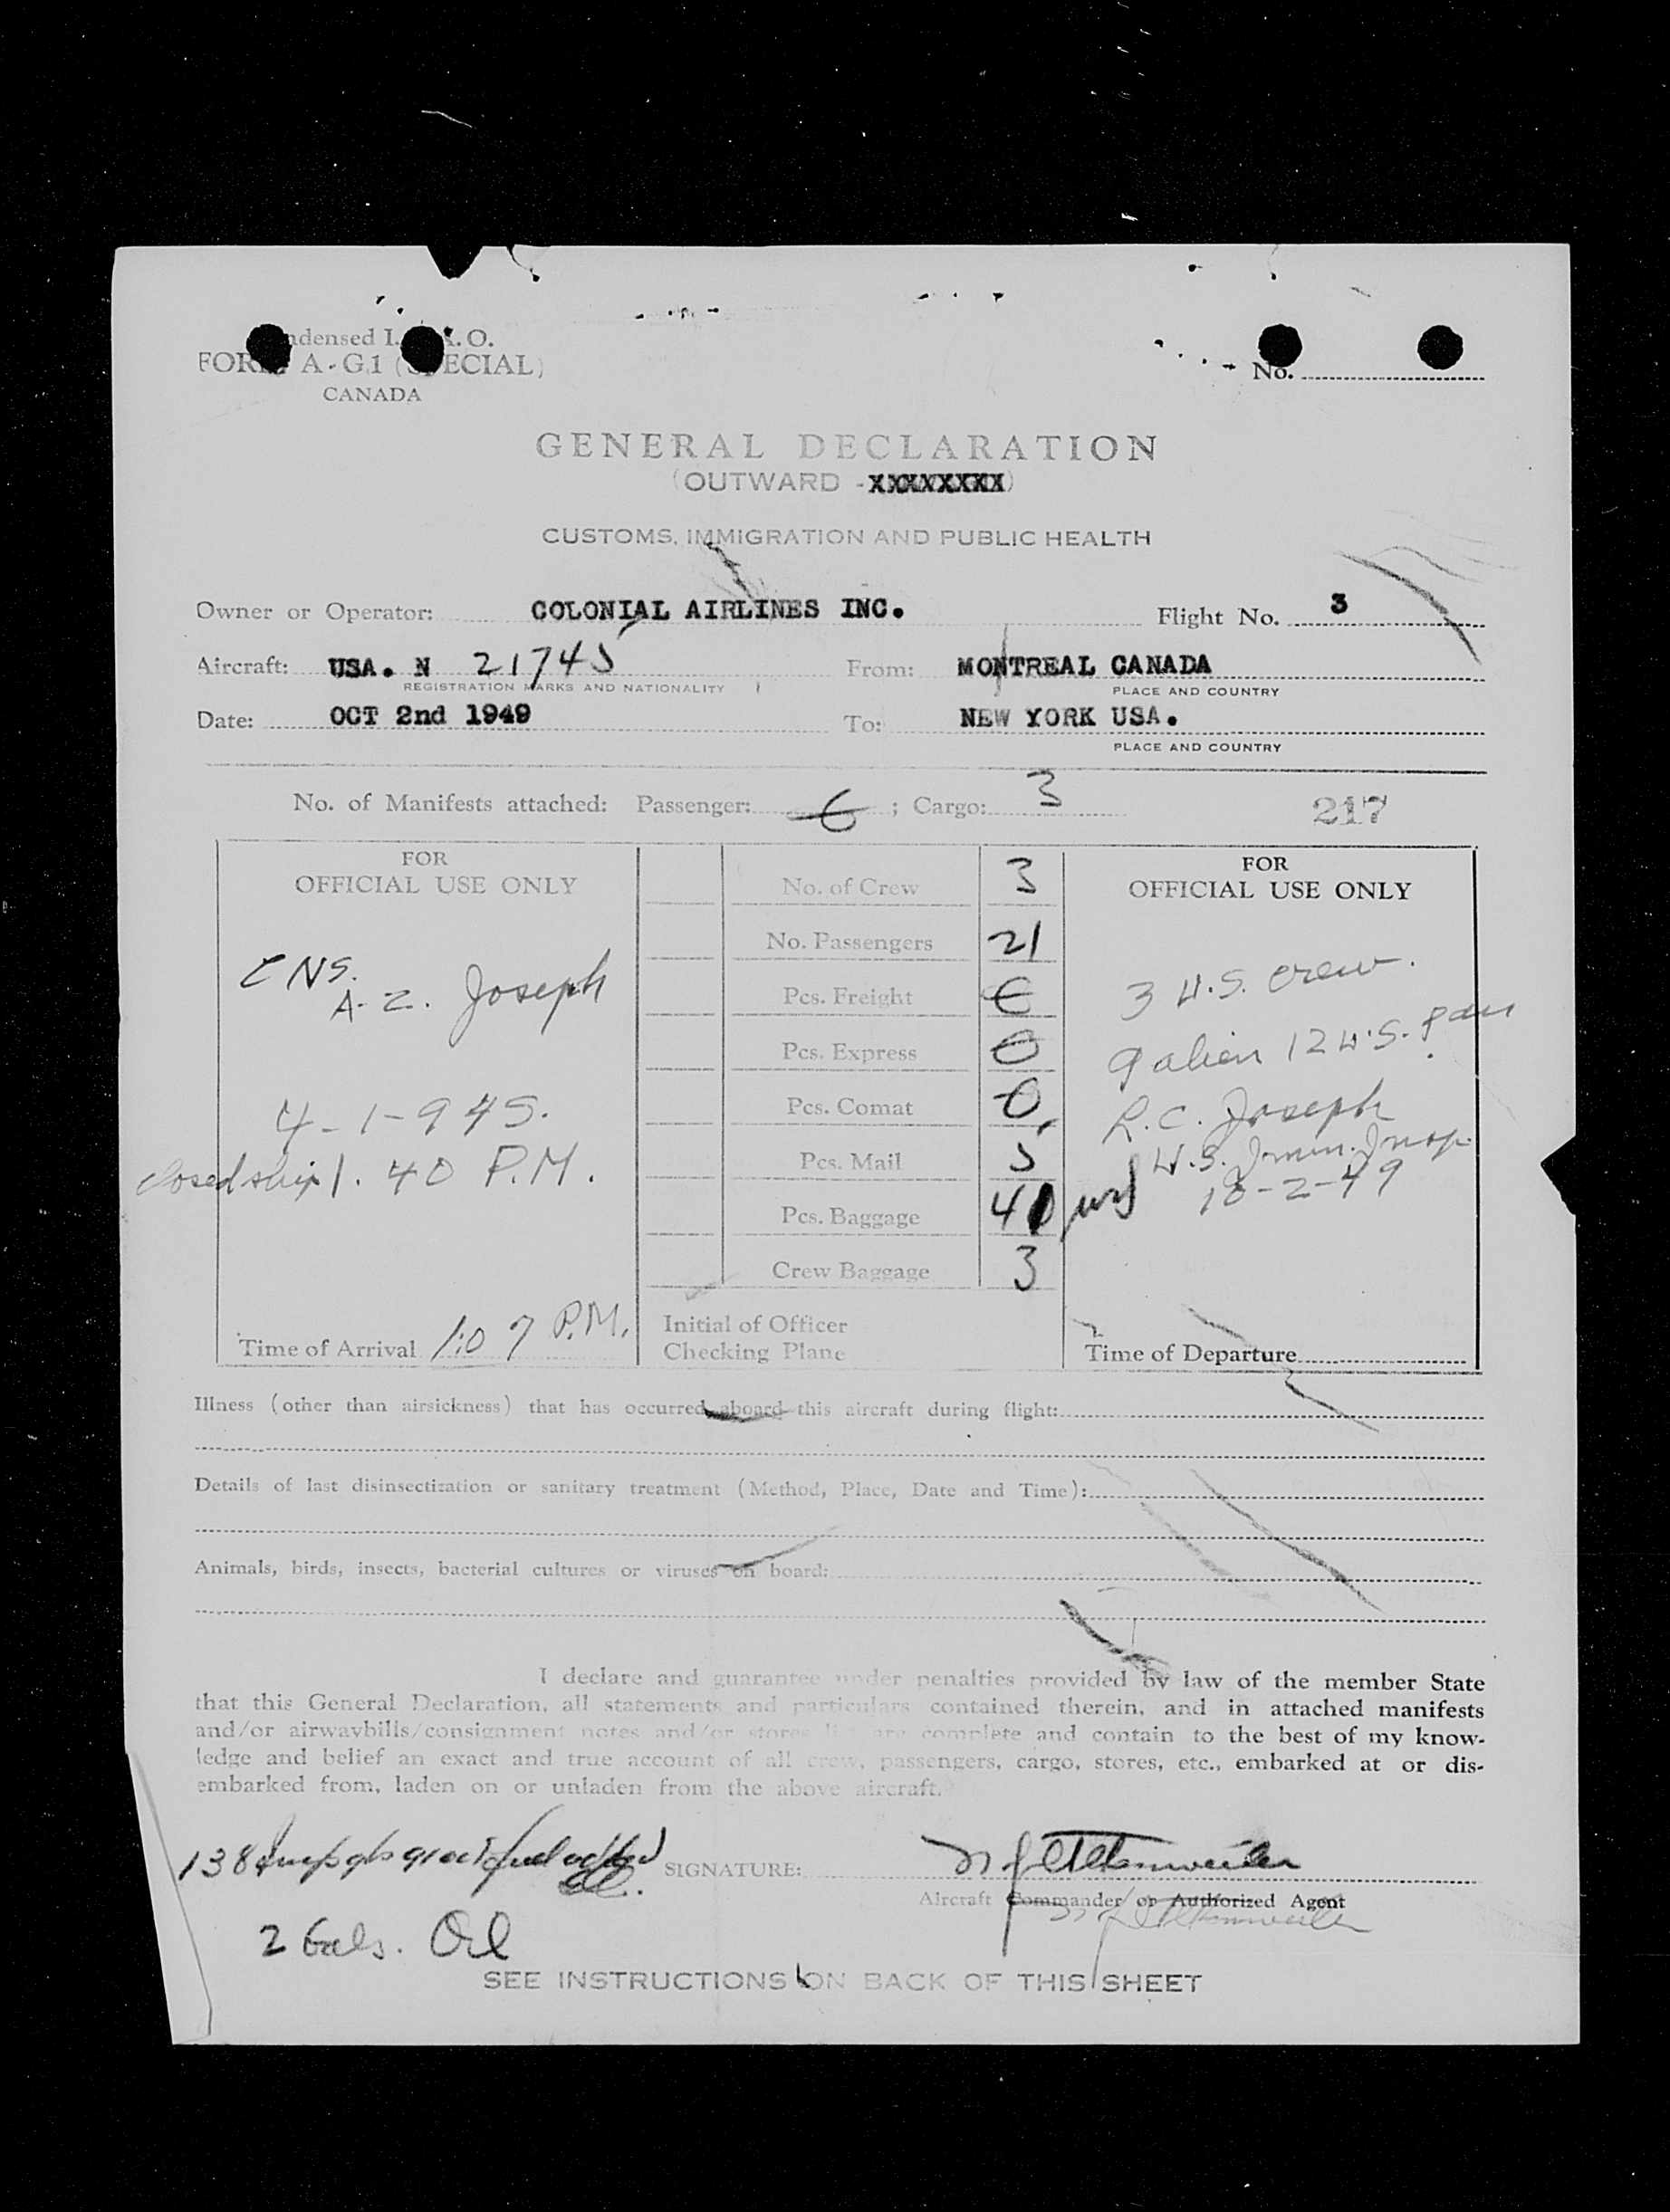 FOR A-G1 (SPECIAL)
CANADA
No.
GENERAL DECLARATION
(OUTWARD - XXXXXXXX)
CUSTOMS, IMMIGRATION AND PUBLIC HEALTH
Owner or Operator: COLONIAL AIRLINES INC. Flight No. 3
Aircraft: USA. N 21745 From: MONTREAL CANADA
REGISTRATION MARKS AND NATIONALITY PLACE AND COUNTRY
Date: OCT 2nd 1949 To: NEW YORK USA.
PLACE AND COUNTRY
No. of Manifests attached: Passenger: ; Cargo: 3 217
FOR
OFFICIAL USE ONLY
A. Z. Joseph
closed ship 1.40 P.M.
Time of Arrival 1:07 P.M.
No. of Crew 3
No. Passengers 21
Pcs. Freight
Pcs. Express 0
Pcs. Comat 0
Pcs. Mail 5
Pcs. Baggage 41
Crew Baggage 3
Initial of Officer
Checking Plane
FOR
OFFICIAL USE ONLY
3 U.S. crew.
9 alien 12 U.S. pass
R.C. Joseph
U.S. Immn. Insp.
10-2-49
Time of Departure
Illness (other than airsickness) that has occurred aboard this aircraft during flight:
Details of last disinsectization or sanitary treatment (Method, Place, Date and Time):
Animals, birds, insects, bacterial cultures or viruses on board:
I declare and guarantee under penalties provided by law of the member State
that this General Declaration, all statements and particulars contained therein, and in attached manifests
and/or airwaybills/consignment notes and/or stores list are complete and contain to the best of my know-
ledge and belief an exact and true account of all crew, passengers, cargo, stores, etc., embarked at or dis-
embarked from, laden on or unladen from the above aircraft.
138 fuel added
SIGNATURE:
Aircraft Commander or Authorized Agent
2 Gals. Oil
SEE INSTRUCTIONS ON BACK OF THIS SHEET